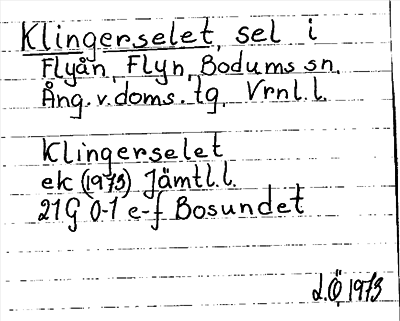 Klingerselet, sel i
Flyån, Flyn, Bodums sn.
Ång. v. doms. tg, Vrnl. l.
Klingerselet
ek (1973) Jämtl. l.
21G 0-1 e-f Bosundet
L.Ö 1973